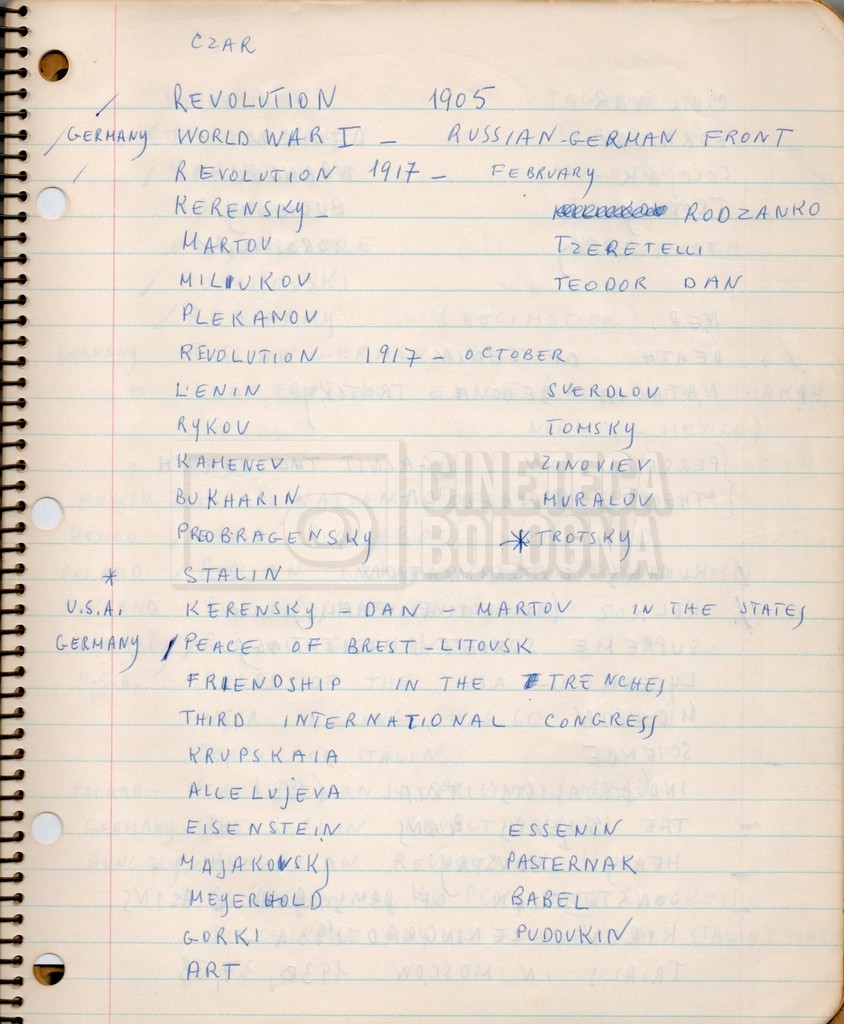 CZAR
REVOLUTION 1905
GERMANY WORLD WAR I - RUSSIAN-GERMAN FRONT
REVOLUTION 1917 - FEBRUARY
KERENSKY - RODZANKO
MARTOV TZERETELLI
MILIUKOV TEODOR DAN
PLEKANOV
REVOLUTION 1917 - OCTOBER
LENIN SVERDLOV
RYKOV TOMSKY
KAMENEV ZINOVIEV
BUKHARIN MURALOV
PREOBRAGENSKY * TROTSKY
* STALIN
U.S.A. KERENSKY - DAN - MARTOV IN THE STATES
GERMANY PEACE OF BREST-LITOVSK
FRIENDSHIP IN THE TRENCHES
THIRD INTERNATIONAL CONGRESS
KRUPSKAIA
ALLELUJEVA
EISENSTEIN ESSENIN
MAJAKOVSKJ PASTERNAK
MEYERHOLD BABEL
GORKI PUDOVKIN
ART
CINETECA
BOLOGNA